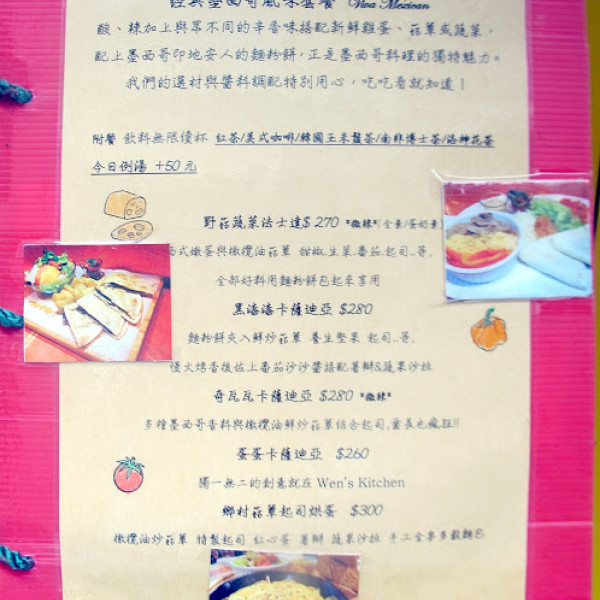 經典墨西哥風味套餐 Viva Mexican
酸、辣加上與眾不同的辛香味搭配新鮮雞蛋、菇蕈或蔬菜,
配上墨西哥印地安人的麵粉餅,正是墨西哥料理的獨特魅力。
我們的選材與醬料調配特別用心,吃吃看就知道!
附餐 飲料無限續杯 紅茶/美式咖啡/韓國玉米鬚茶/南非博士茶/洛神花茶
今日例湯 +50 元
野菇蔬菜法士達$ 270 *微辣*(全素/蛋奶素)
西式嫩蛋與橄欖油菇蕈 甜椒、生菜、番茄、起司..等,
全部好料用麵粉餅包起來享用
黑潘潘卡薩迪亞 $280
麵粉餅夾入鮮炒菇蕈 養生堅果 起司..等,
慢火烤香後佐上番茄沙沙醬搭配薯瓣&蔬果沙拉
奇瓦瓦卡薩迪亞 $280 *微辣*
多種墨西哥香料與橄欖油鮮炒菇蕈結合起司,酋長也瘋狂!!
蛋蛋卡薩迪亞 $260
獨一無二的創意就在 Wen's Kitchen
鄉村菇蕈起司烘蛋 $300
橄欖油炒菇蕈 特製起司 紅心蛋 薯瓣 蔬果沙拉 手工全麥多穀麵包